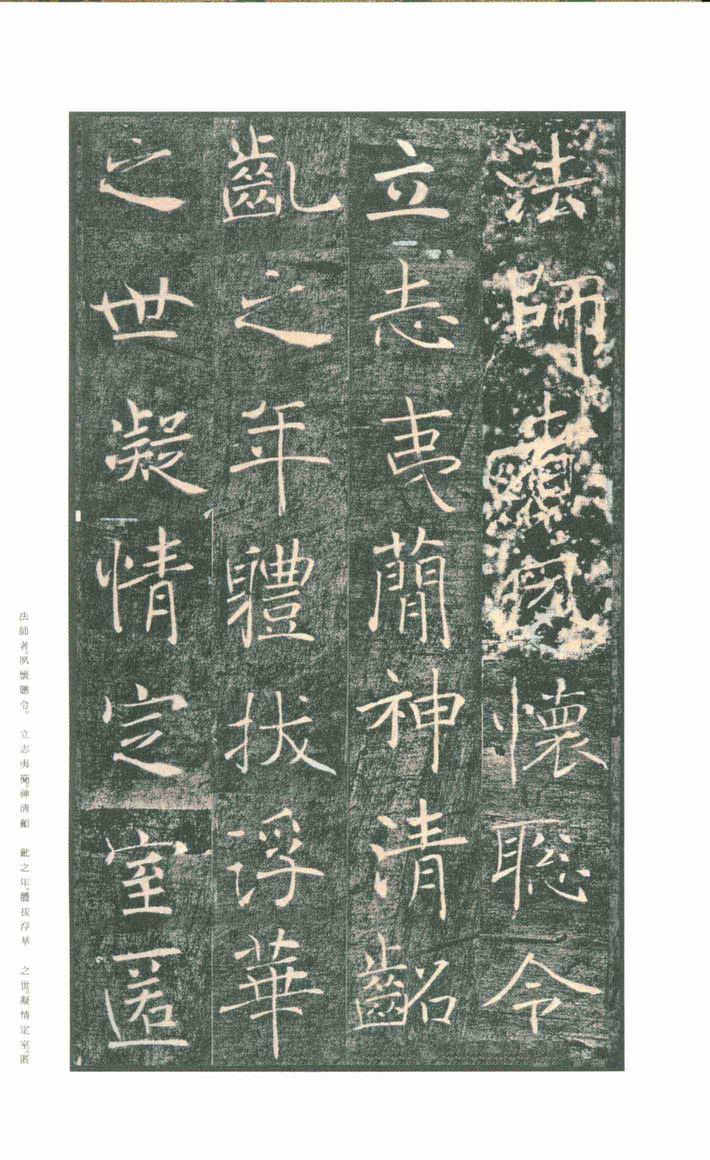 法師懷聦令
立志夷蕳神清齠
齓之年體拔浮華
之世凝情定室匿
法師者。夙懷聰令。 立志夷簡。神清齠 齔之年。體拔浮華 之世。凝情定室。匿